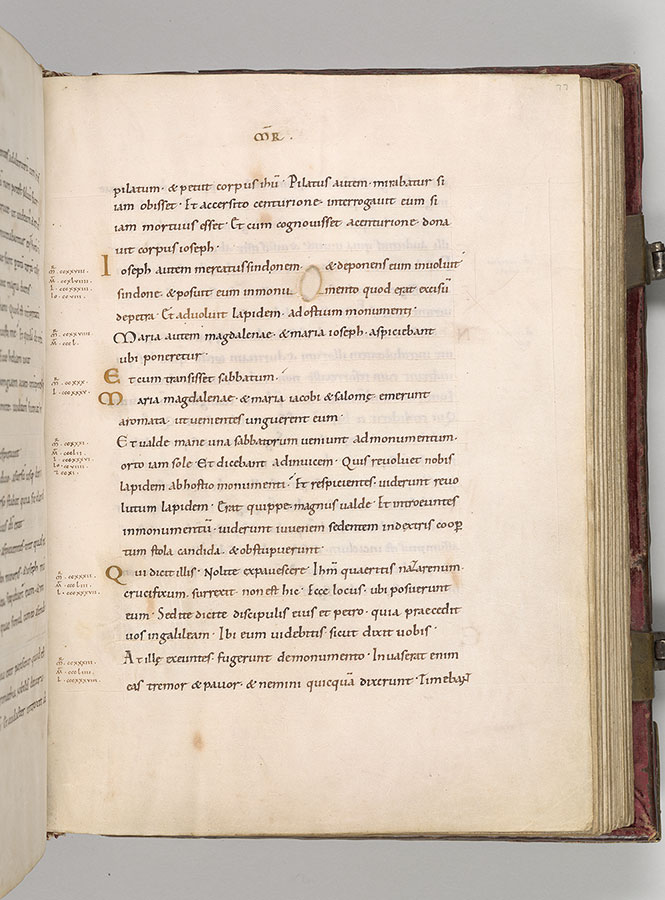 77
MR.
pilatum · & petiit corpus ihū · Pilatus autem · mirabatur si
iam obisset · Et accersito centurione · interrogavit eum si
iam mortuus esset · Et cum cognovisset acenturione · dona
vit corpus ioseph ·
Ioseph autem mercatus sindonem · & deponens eum involuit
sindone · & posuit eum inmonu mento quod erat excisū
depetra · Et advoluit lapidem · ad ostium monumenti ·
Maria autem magdalenae · & maria ioseph · aspiciebant
ubi poneretur ·
Et cum transisset sabbatum ·
Maria magdalenae · & maria iacobi & salomę · emerunt
aromata · ut venientes unguerent eum ·
Et valde mane una sabbatorum veniunt admonumentum ·
orto iam sole · Et dicebant adinvicem · Quis revoluet nobis
lapidem ab hostio monumenti · Et respicientes · viderunt revo
lutum lapidem · Erat quippe · magnus valde · Et introeuntes
inmonumentū · viderunt iuvenem sedentem indextris coop
tum stola candida · & obstupuerunt ·
Qui dicit illis · Nolite expavescere · Ihm̄ quaeritis nazarenum ·
crucifixum · surrexit · non est hic · Ecce locus · ubi posuerunt
eum · Sed ite dicite discipulis eius et petro · quia praecedit
vos ingalileam · Ibi eum videbitis sicut dixit vobis ·
At illę exeuntes · fugerunt demonumento · Invaserat enim
eas tremor & pavor · & nemini quicquā dixerunt · Timebant